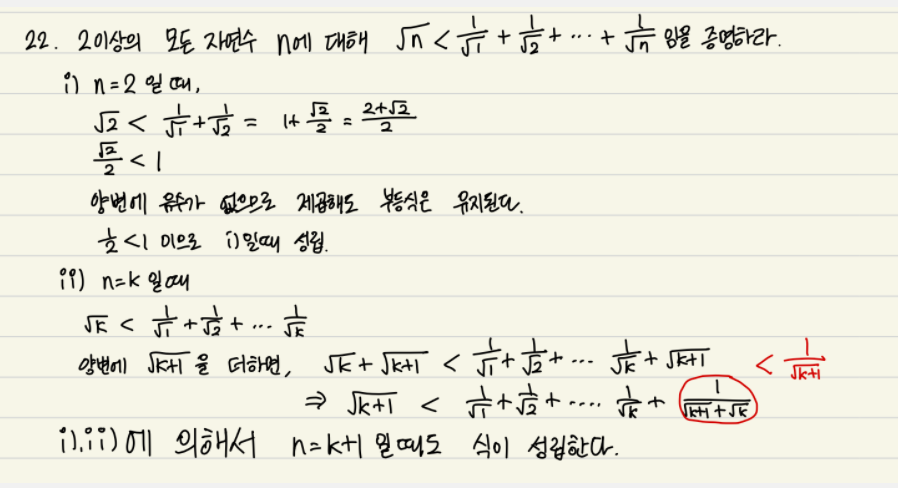 22. 2이상의 모든 자연수 n에 대해 √n < 1/√1 + 1/√2 + ... + 1/√n 임을 증명하라.
i) n=2 일 때,
√2 < 1/√1 + 1/√2 = 1+ √2/2 = 2+√2/2
√2/2 < 1
양변에 음수가 없으므로 제곱해도 부등식은 유지된다.
1/2 < 1 이므로 i)일때 성립.
ii) n=k 일때
√k < 1/√1 + 1/√2 + ... 1/√k
양변에 √k+1 을 더하면, √k + √k+1 < 1/√1 + 1/√2 + ... 1/√k + √k+1 < 1/√k+1
⇒ √k+1 < 1/√1 + 1/√2 + .... 1/√k + 1/√k+1 + √k
i),ii)에 의해서 n=k+1 일때도 식이 성립한다.